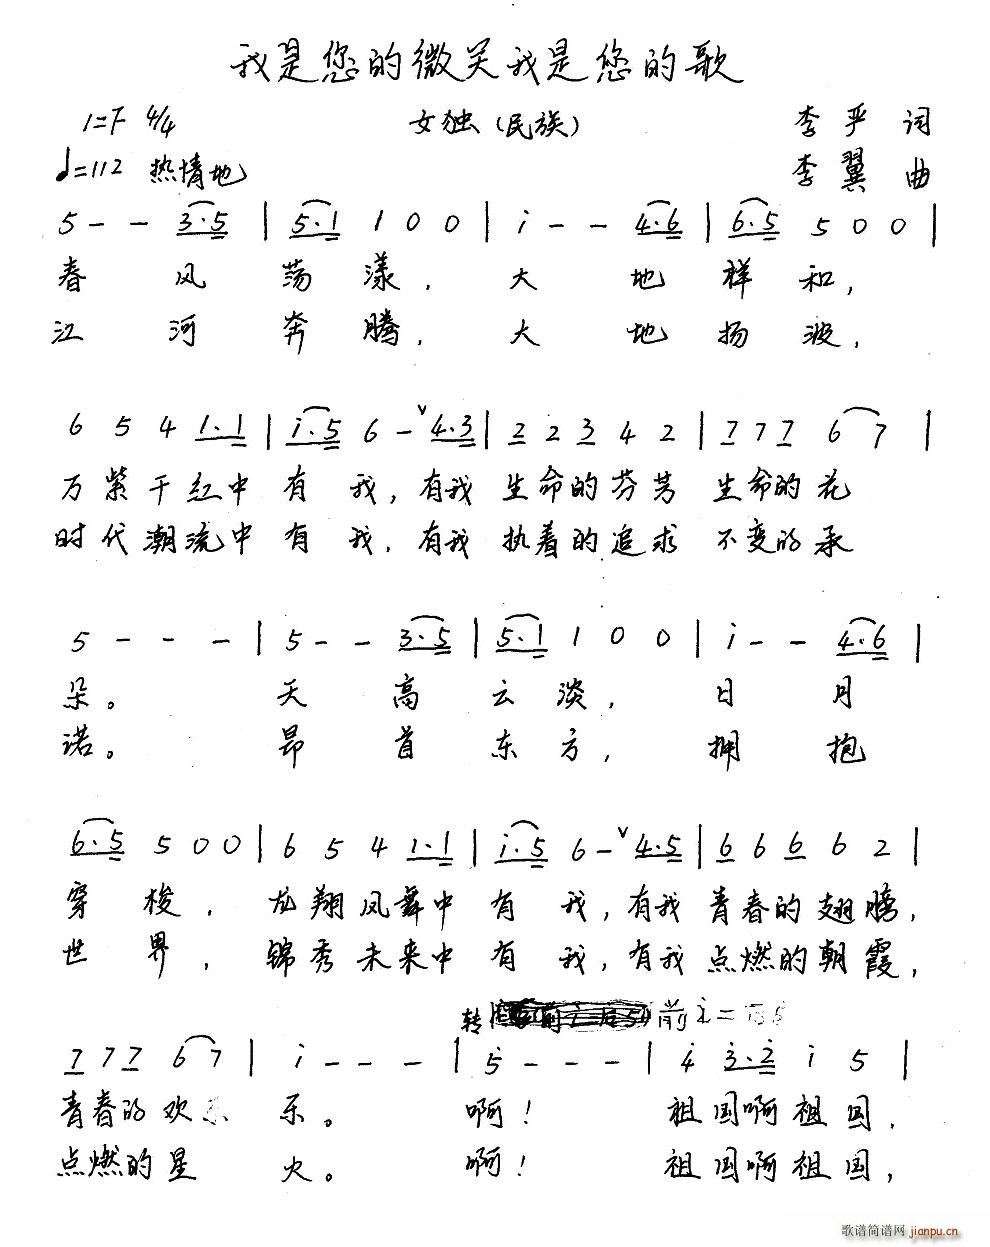 我是您的微笑我是您的歌
1=F 4/4 女独(民族) 李严 词
♩=112 热情地 李翼 曲
5 - - 3·5 | 5·1 1 0 0 | i - - 4·6 | 6·5 5 0 0 |
春风荡漾, 大地祥和,
江河奔腾, 大地扬波,
6 5 4 1·1 | i·5 6 - ∨ 4·3 | 2 2 3 4 2 | 7 7 7 6 7 |
万紫千红中有我, 有我生命的芬芳 生命的花
时代潮流中有我, 有我执着的追求 不变的承
5 - - - | 5 - - 3·5 | 5·1 1 0 0 | i - - 4·6 |
朵。 天高云淡, 日月
诺。 昂首东方, 拥抱
6·5 5 0 0 | 6 5 4 1·1 | i·5 6 - ∨ 4·5 | 6 6 6 6 2 |
穿梭, 龙翔凤舞中有我, 有我青春的翅膀,
世界, 锦秀未来中有我, 有我点燃的朝霞,
转 前 i =
7 7 7 6 7 | i - - - | 5 - - - | 4 3·2 i 5 |
青春的欢 乐。 啊! 祖国啊祖国,
点燃的星火。 啊! 祖国啊祖国,
歌谱简谱网 jianpu.cn